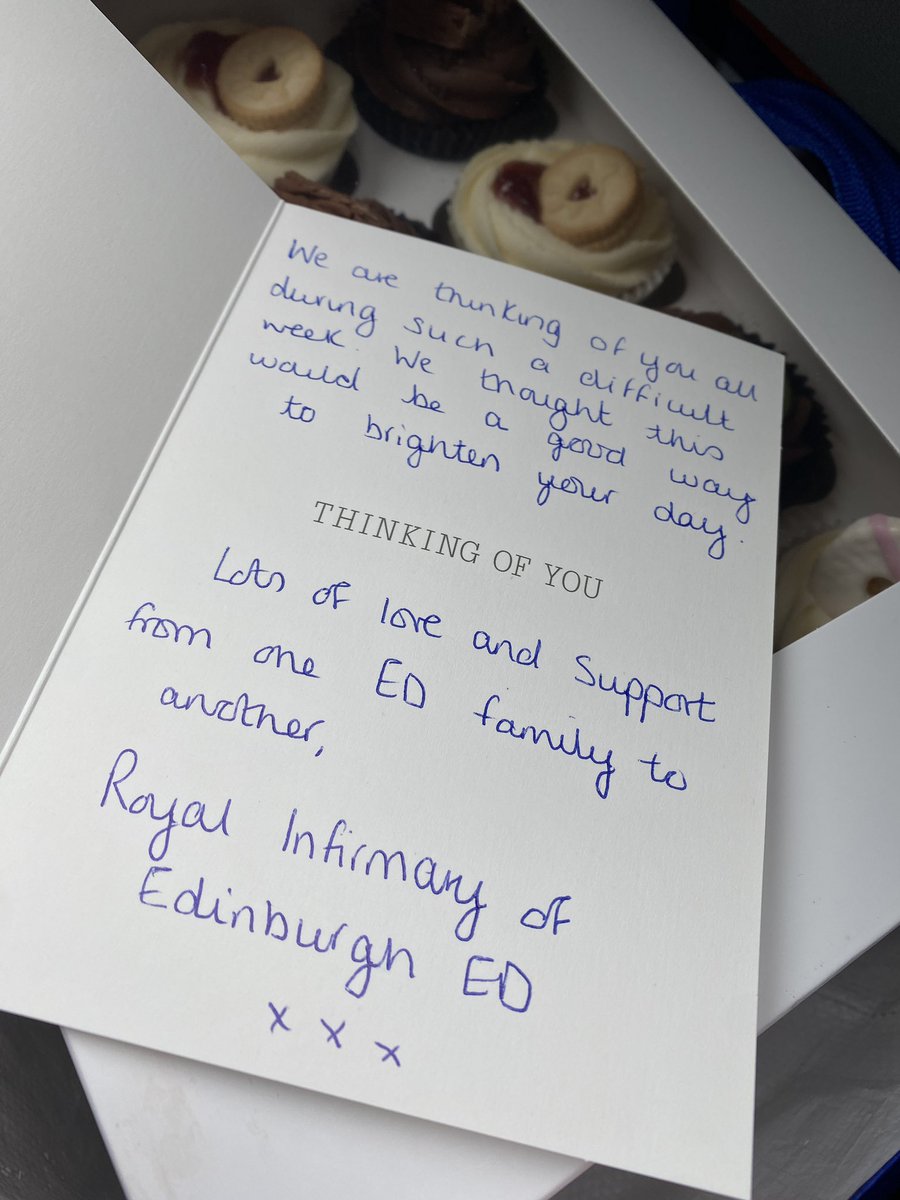 We are thinking of you all
during such a difficult
week. We thought this
would be a good way
to brighten your day.
THINKING OF YOU
Lots of love and Support
from one ED family to
another,
Royal Infirmary of
Edinburgh ED
x x x